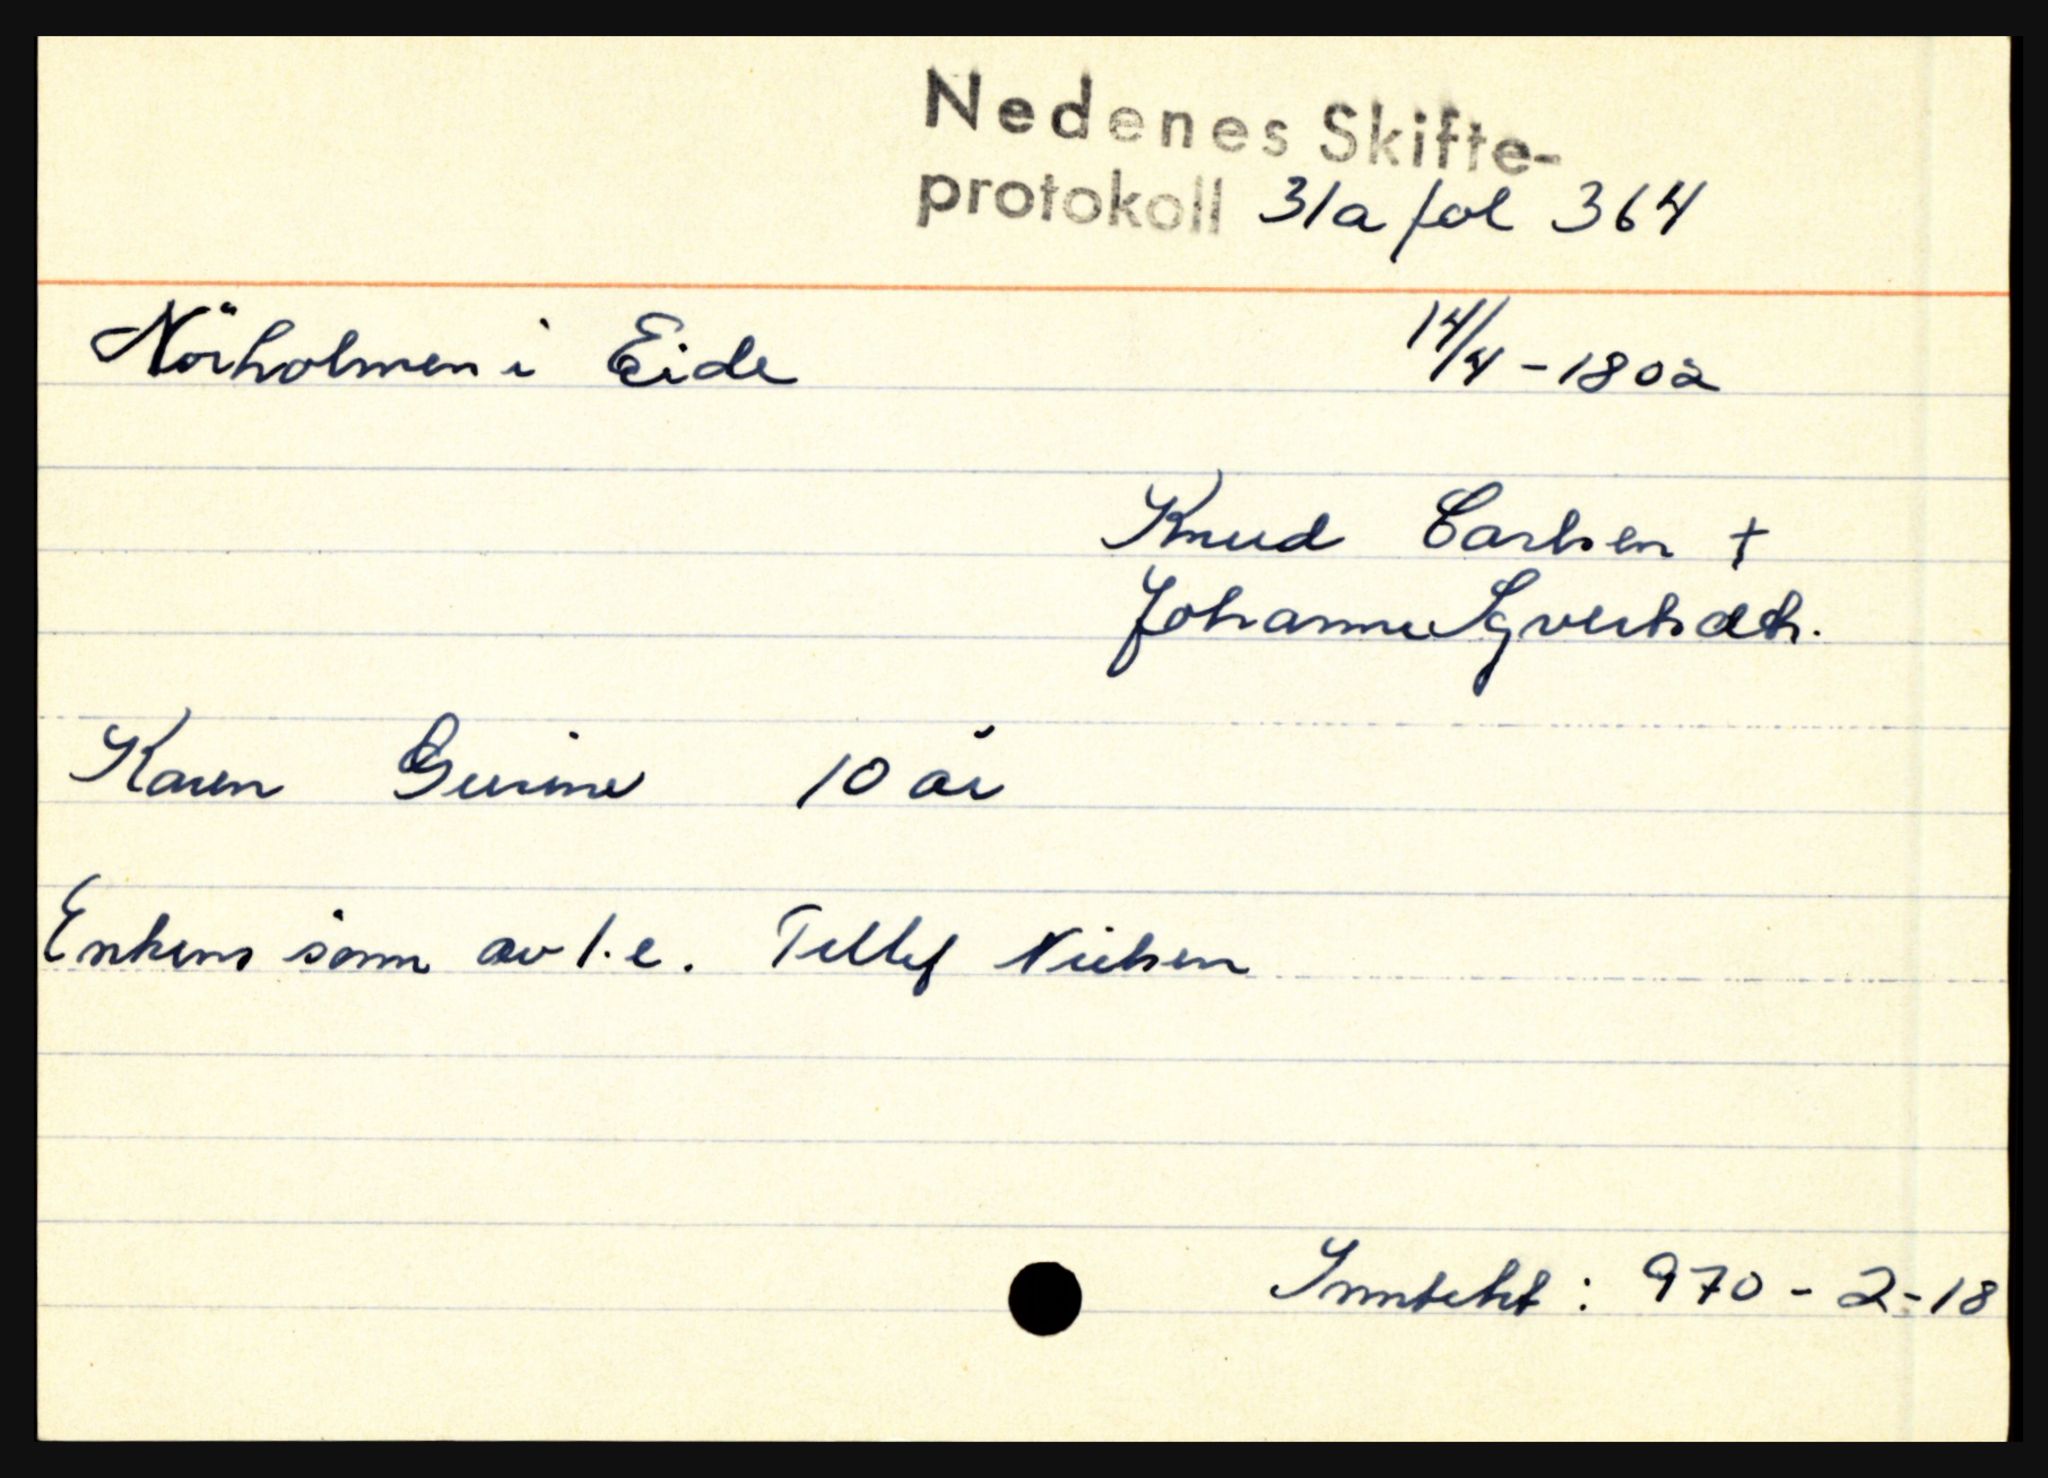 Nedenes Skifte-
protokoll 31a fol 364
Nörholmen i Eide 14/4-1802
Knud Carlsen +
Johanne Syvertsdtr.
Karen Gurine 10 år
Enkens sönn av 1.e. Tellef Nielsen
Inntekt: 970-2-18